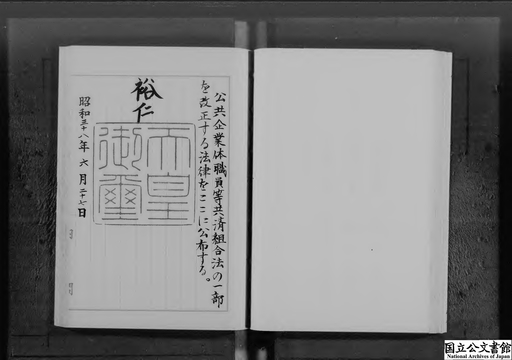 公共企業体職員等共済組合法の一部
を改正する法律をここに公布する。
裕仁
天皇
御璽
昭和三十八年六月二十七日
国立公文書館
National Archives of Japan